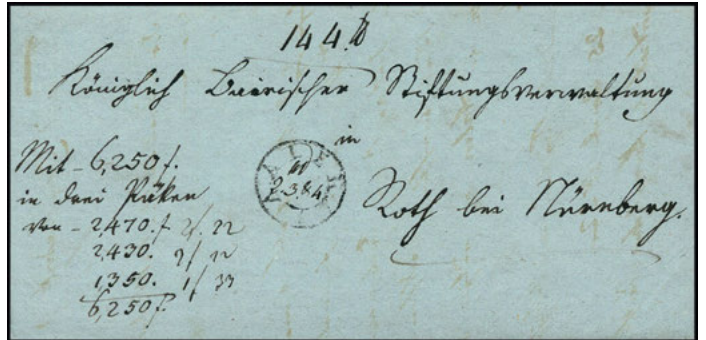 144. ℔
Königlich Bairischer Stiftungsverwaltung
in
Roth bei Nürnberg.
Mit - 6,250 f.
in drei Päken
von - 2470. f 2/. 22
2430. 2/ 22
1,350. 1/ 33
6,250 f.